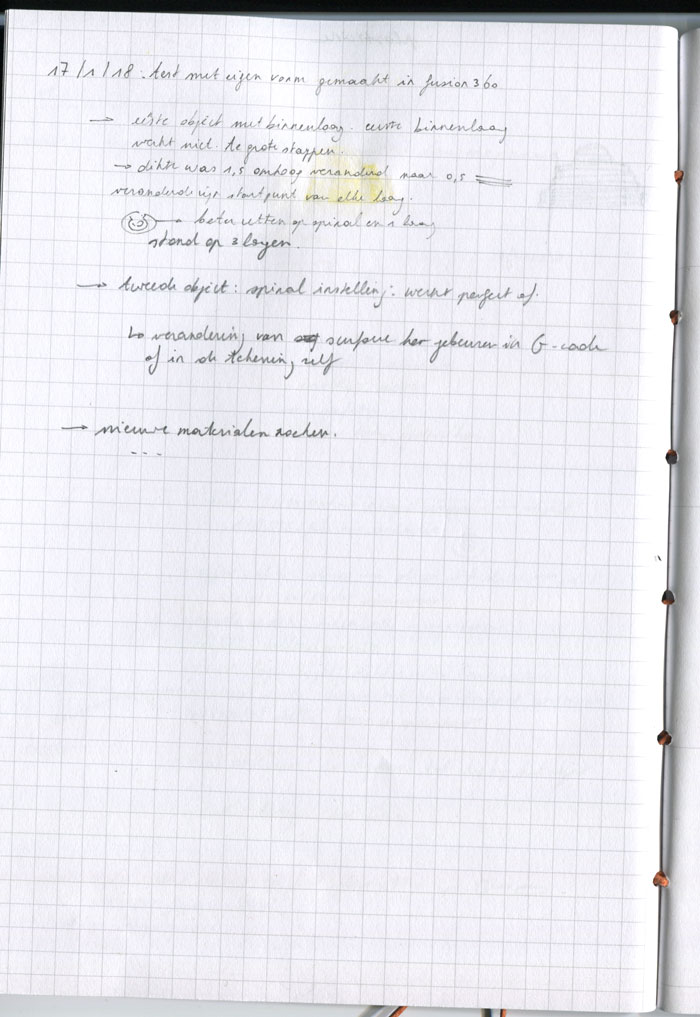 17/1/18. test met eigen vorm gemaakt in fusion 360
→ eerste object met binnenlaag. eerste binnenlaag
werkt niet. te grote stappen.
→ dikte was 1,5 omhoog veranderd naar 0,5
veranderde zijn startpunt van elke laag.
→ beter zetten op spiral en 1 laag
stond op 3 lagen.
→ tweede object: spiral instelling: werkt perfect af.
↳ verandering van surface kan gebeuren in G-code
of in de tekening zelf
→ nieuwe materialen zoeken.
...